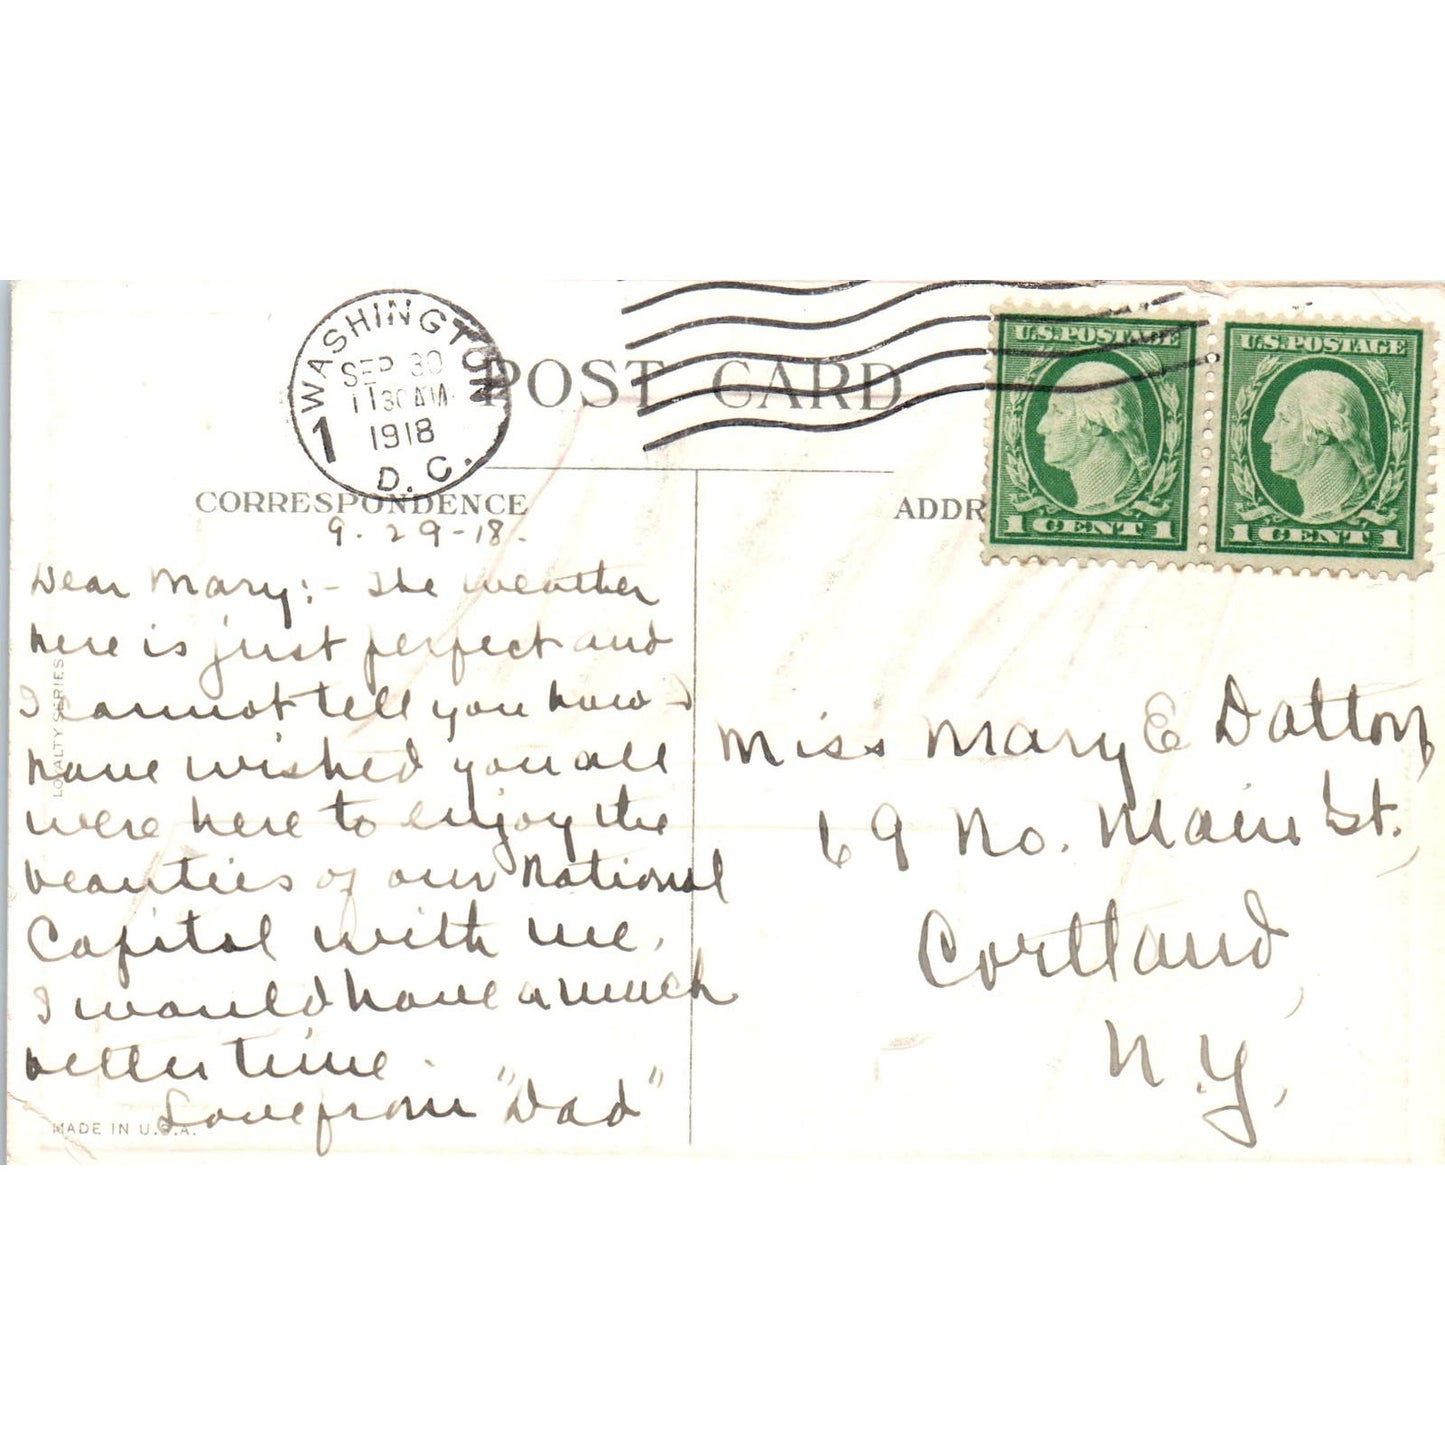 WASHINGTON
SEP 30
1130AM
1918
1
D. C.
POST CARD
U.S. POSTAGE
1 CENT 1
U.S. POSTAGE
1 CENT 1
CORRESPONDENCE
ADDR
9. 29-18.
Dear Mary:- The weather
here is just perfect and
I cannot tell you how I
have wished you all
were here to enjoy the
beauties of our National
Capitol with me.
I would have a much
better time.
Love from "Dad"
LOYALTY SERIES
MADE IN U.S.A.
Miss Mary E Dalton,
69 No. Main St.,
Cortland,
N.Y.,